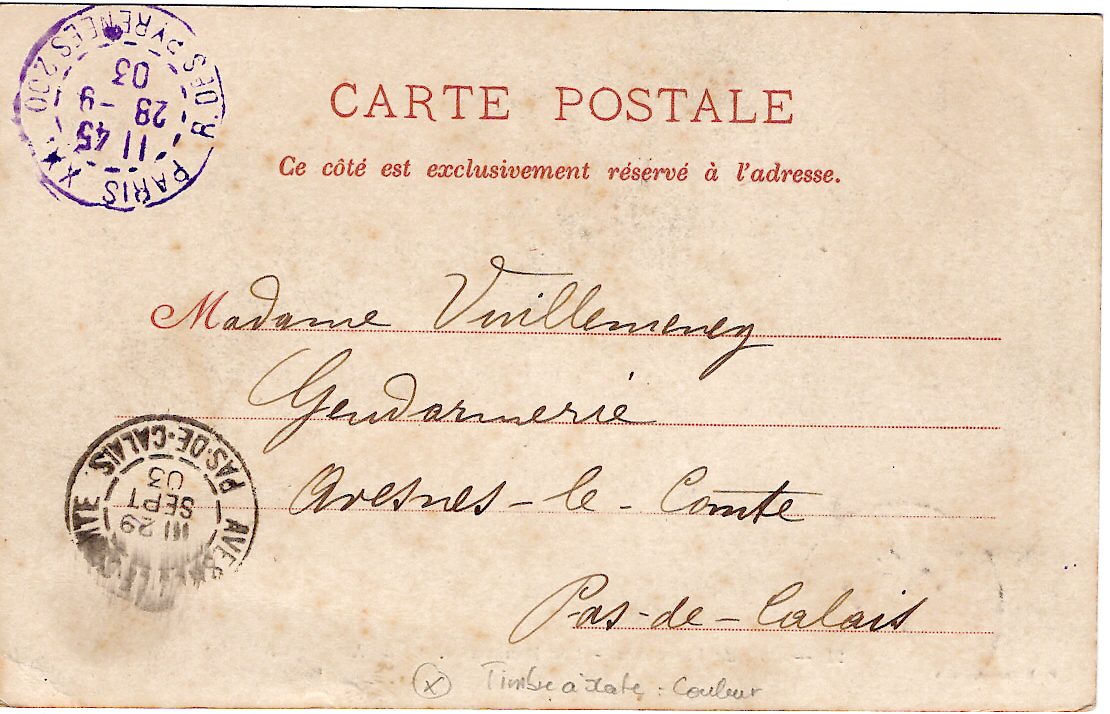 PARIS XX R. DES PYRENEES 200
11 45
28 -9
03
CARTE POSTALE
Ce côté est exclusivement réservé à l'adresse.
Madame Vuillemeney
Gendarmerie
Avesnes-le-Comte
Pas-de-Calais
PAS-DE-CALAIS
29
SEPT
03
Timbre à date : Couleur